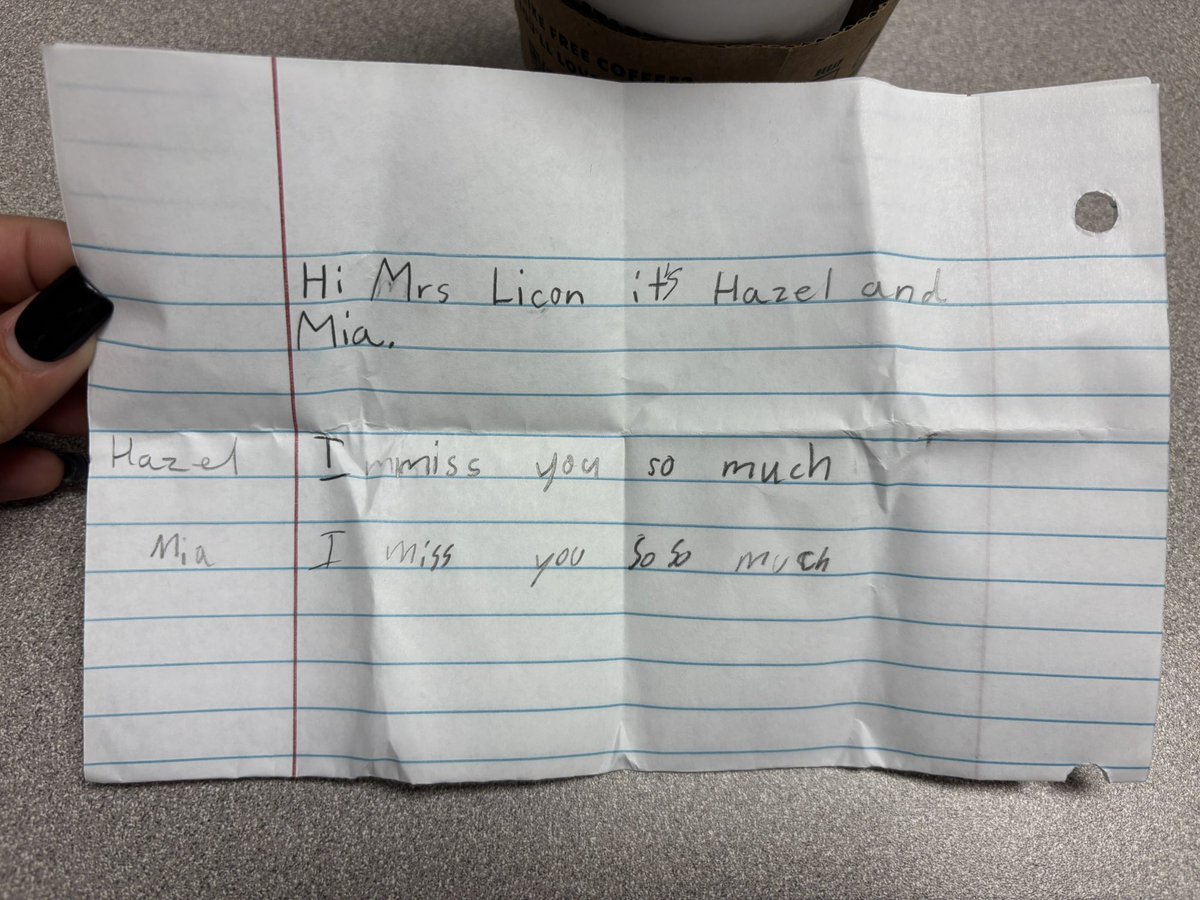 KE FREE COFFEE?
'LL LOV
Hi Mrs Licon it's Hazel and
Mia.
Hazel I mmiss you so much
Mia I miss you so so much